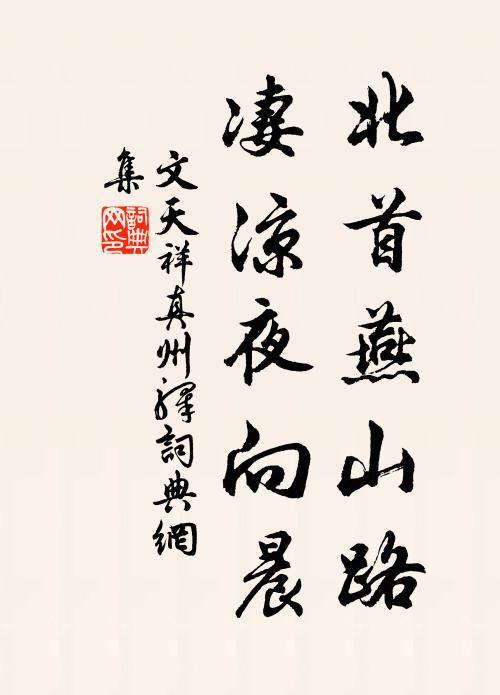 北首燕山路
凄涼夜向晨
文天祥真州驛詞典網
集
詞典網印